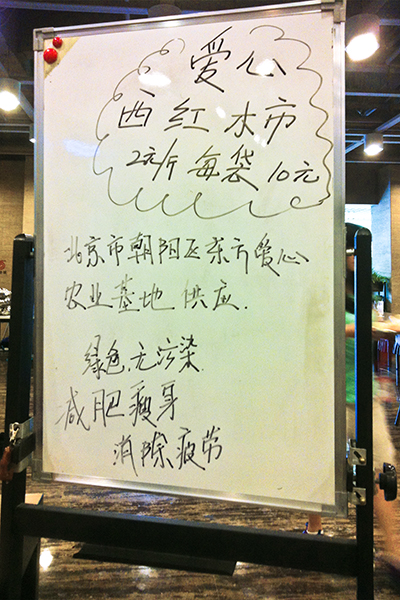 爱心
西红水市
2元/斤 每袋 10元
北京市朝阳区东方爱心
农业基地 供应.
绿色.无污染.
减肥瘦身
消除疲劳